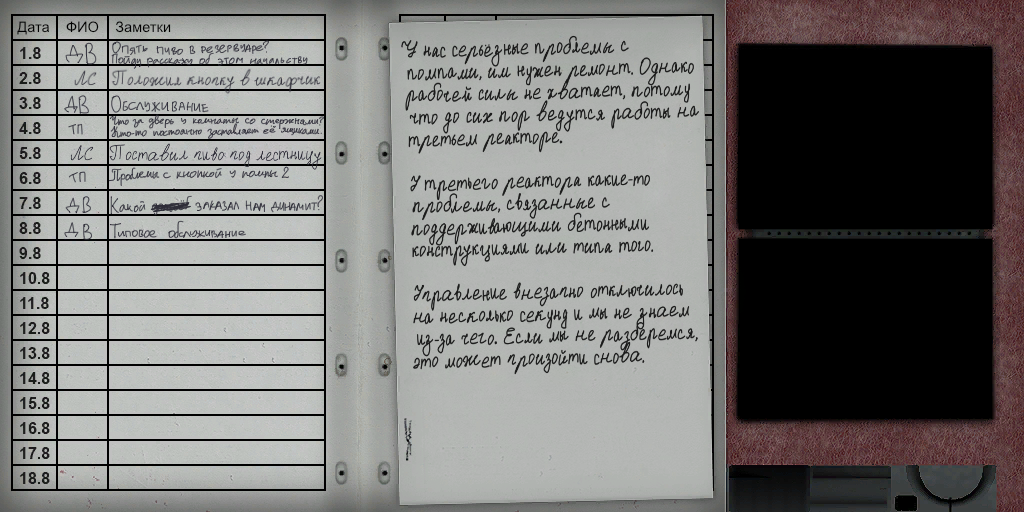 Дата ФИО Заметки
1.8 ДВ Опять пиво в резервуаре?
Пойди расскажи об этом начальству
2.8 ЛС Положил кнопку в шкафчик
3.8 ДВ Обслуживание
4.8 ТП Что за дверь у комнаты со стержнями?
Кто-то постоянно заставляет её ящиками.
5.8 ЛС Поставил пиво под лестницу
6.8 ТП Проблемы с кнопкой у помпы 2
7.8 ДВ Какой заказал нам динамит?
8.8 ДВ Типовое обслуживание
9.8
10.8
11.8
12.8
13.8
14.8
15.8
16.8
17.8
18.8
У нас серьёзные проблемы с
помпами, им нужен ремонт. Однако
рабочей силы не хватает, потому
что до сих пор ведутся работы на
третьем реакторе.
У третьего реактора какие-то
проблемы, связанные с
поддерживающими бетонными
конструкциями или типа того.
Управление внезапно отключилось
на несколько секунд и мы не знаем
из-за чего. Если мы не разберемся,
это может произойти снова.